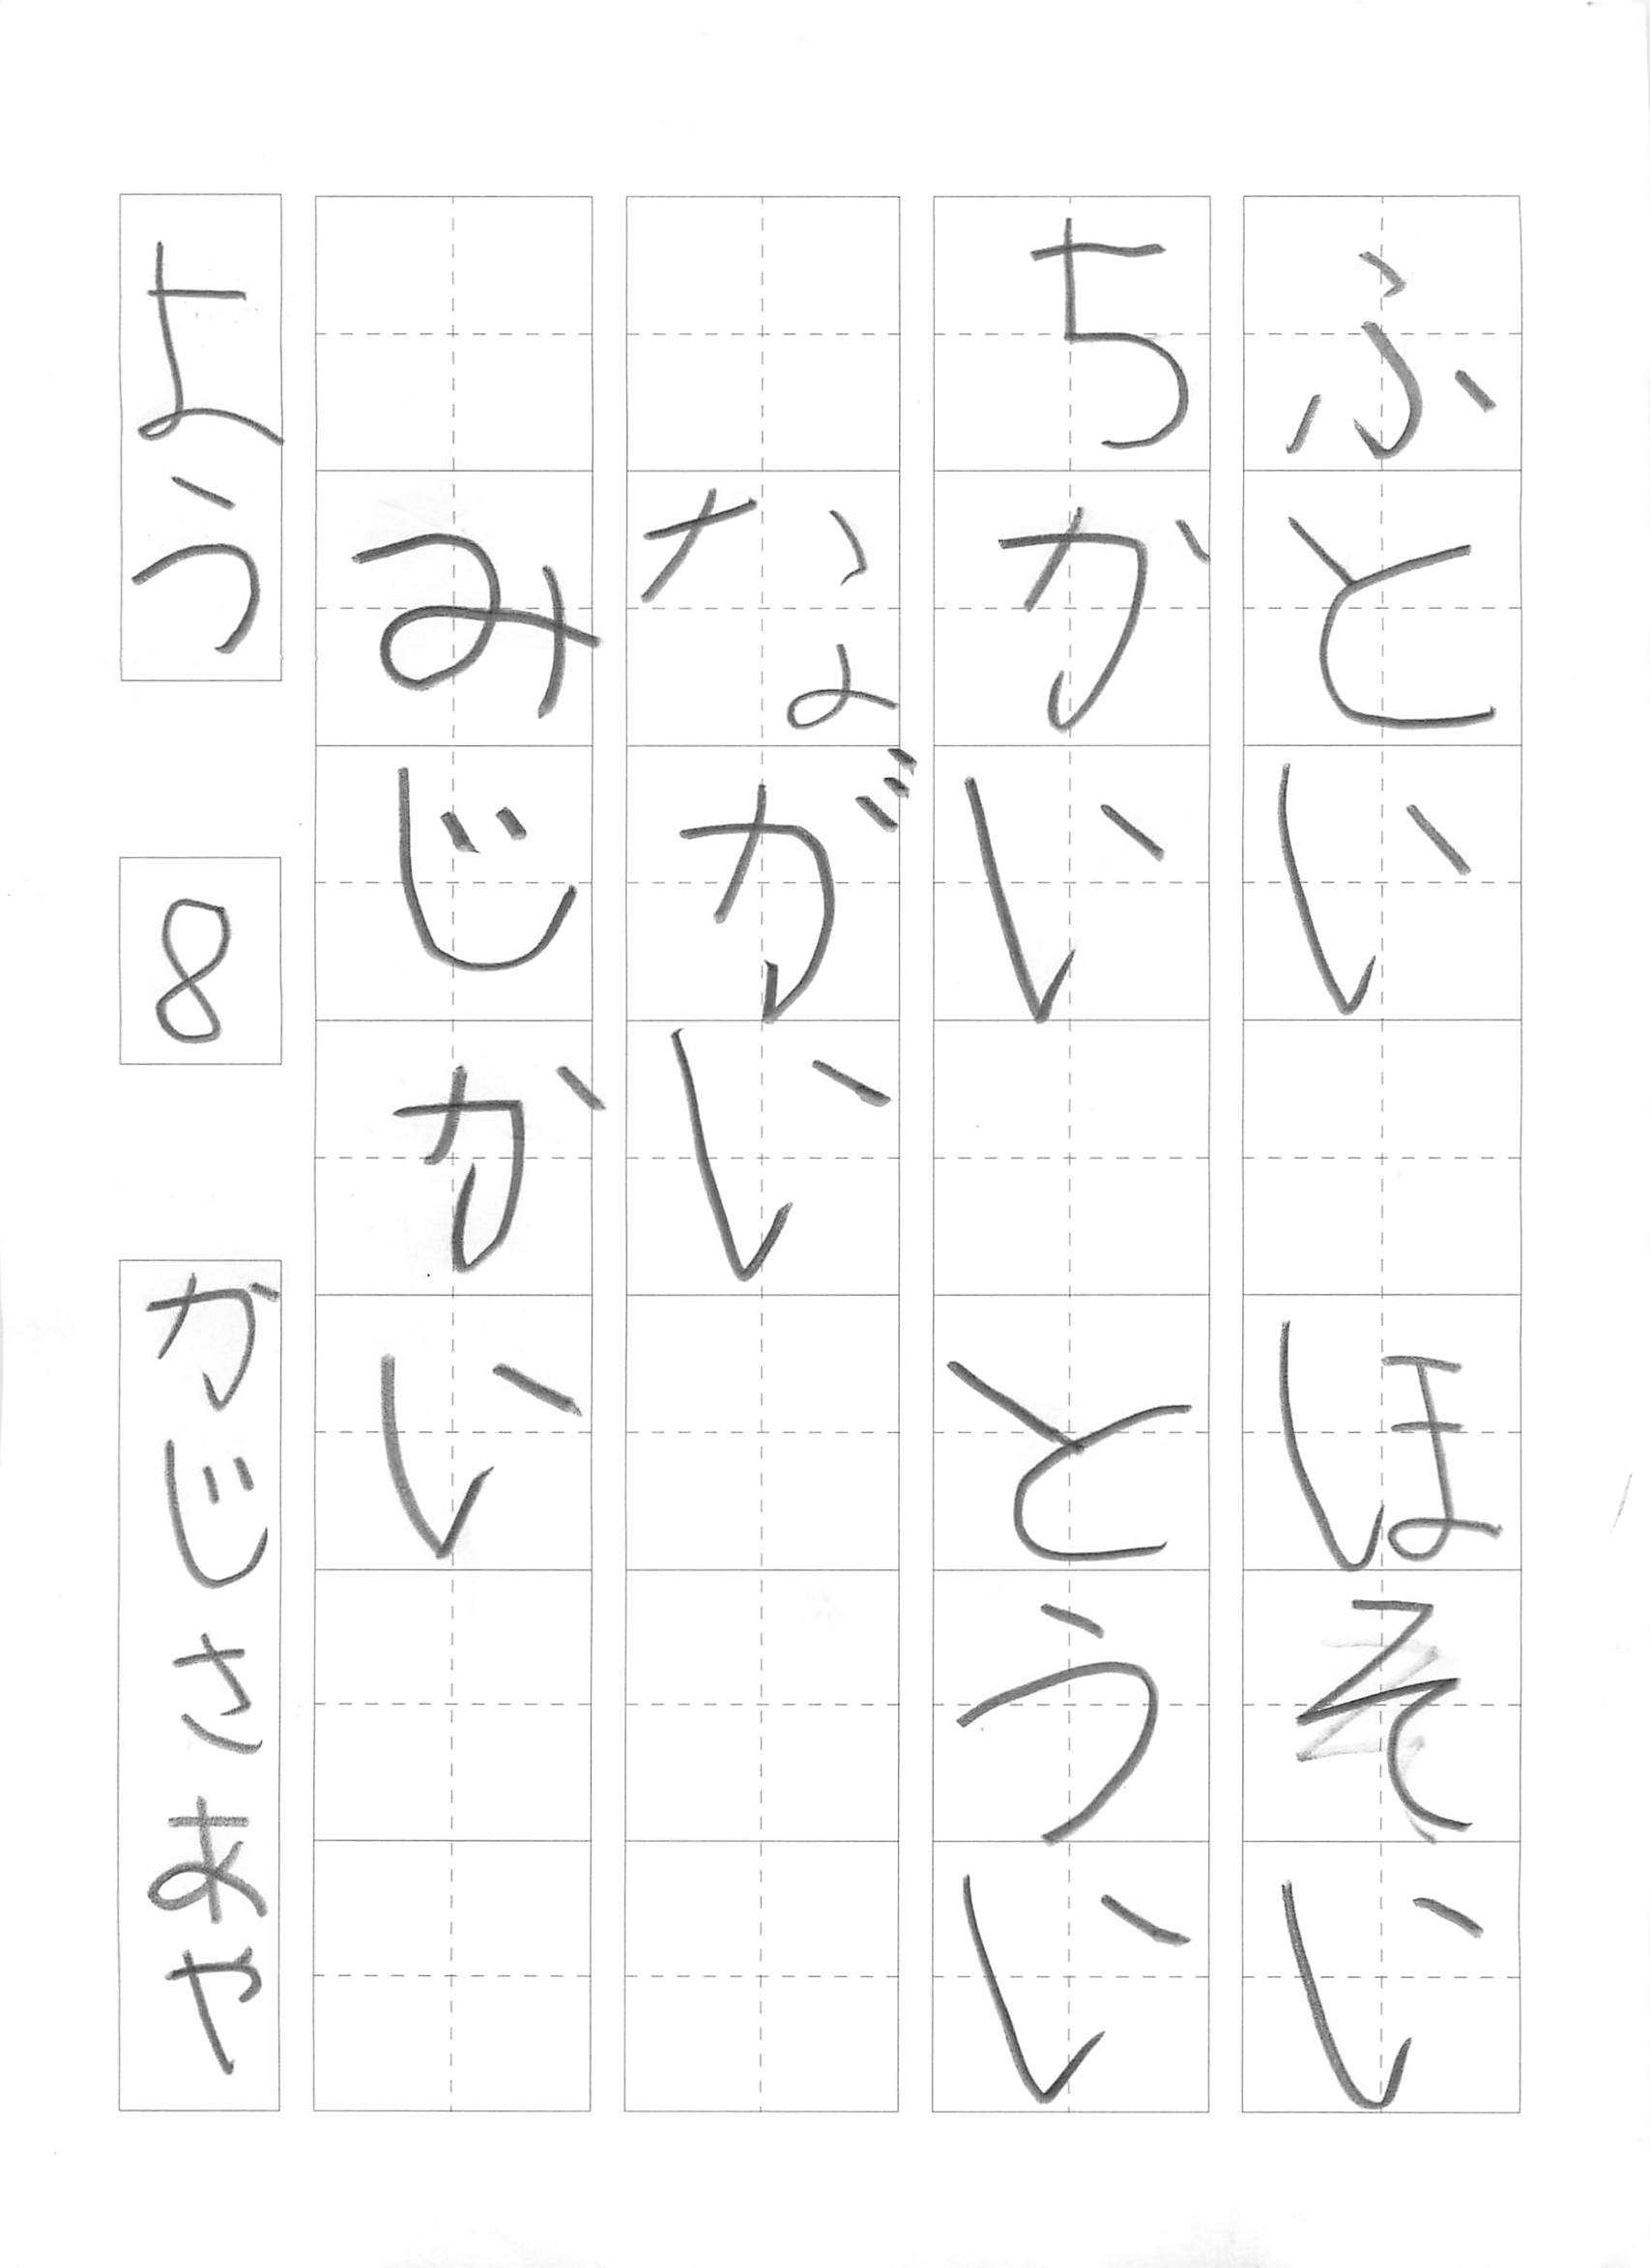 ふとい　ほそい
ちかい　とうい
ながい
みじかい
よう　8　かじさあや